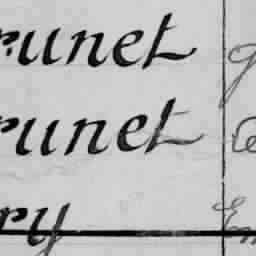 runet
runet
ry